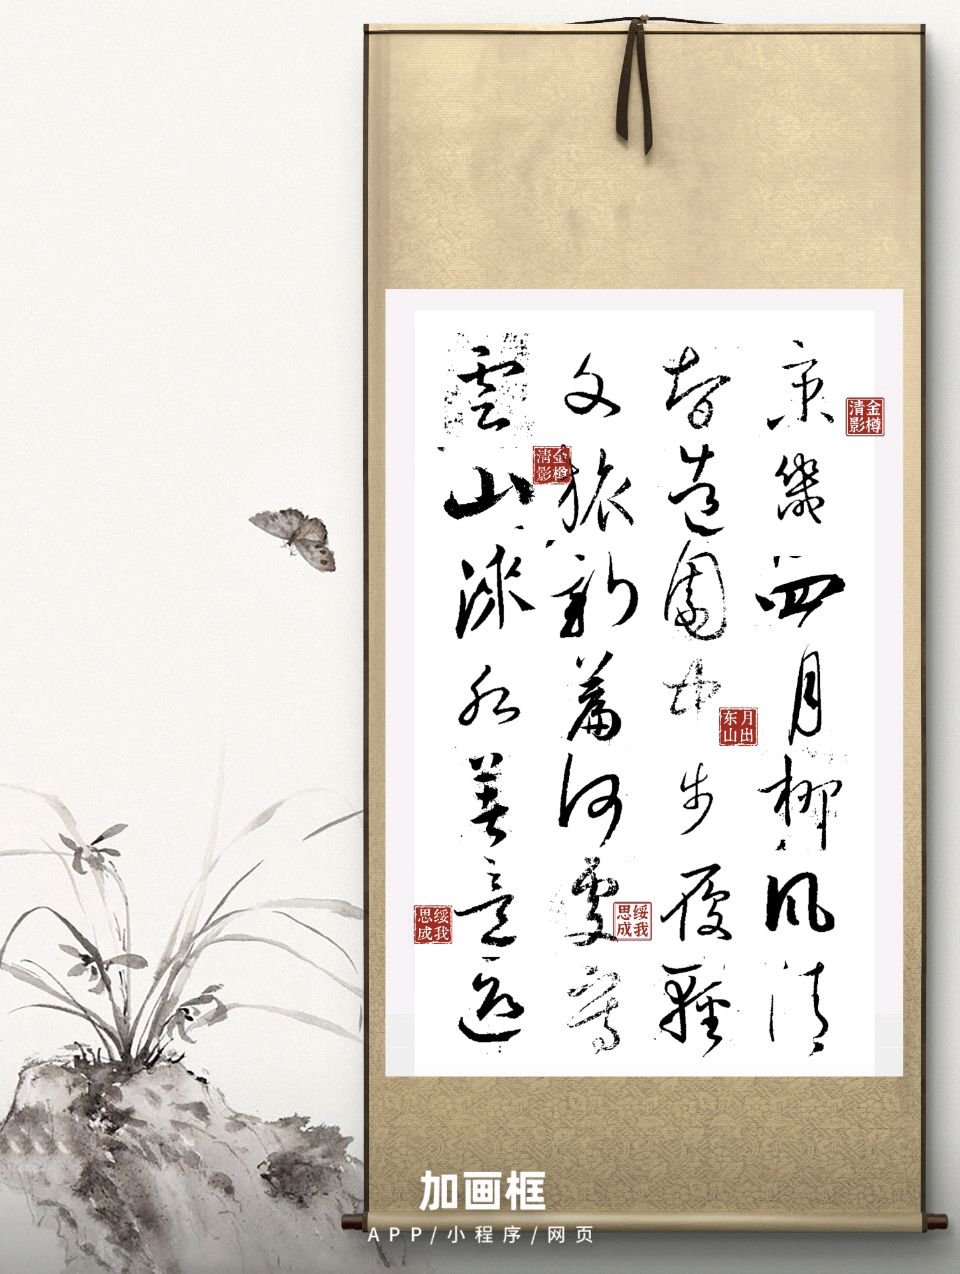 京畿四月柳風清
智造園中步履輕
文旅新篇何處寫
雲山淶水美意迎
金樽清影
金樽清影
月出东山
绥我思成
绥我思成
加画框
APP/小程序/网页